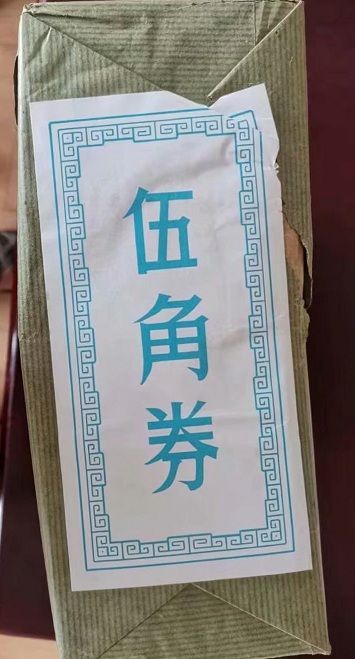 伍角券